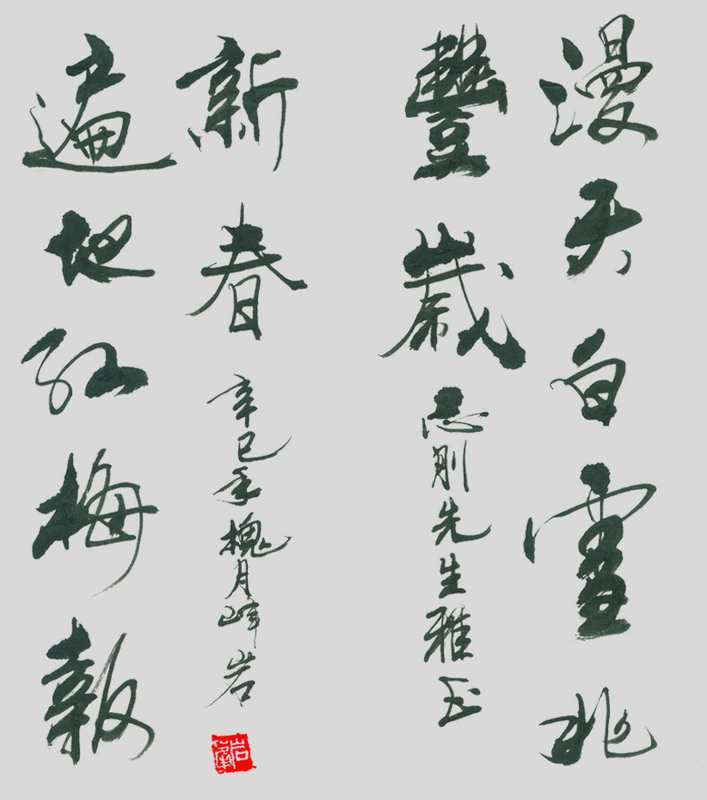 漫天白雪兆
豐歲
志刚先生雅正
遍地红梅報
新春
辛巳年槐月峰岩